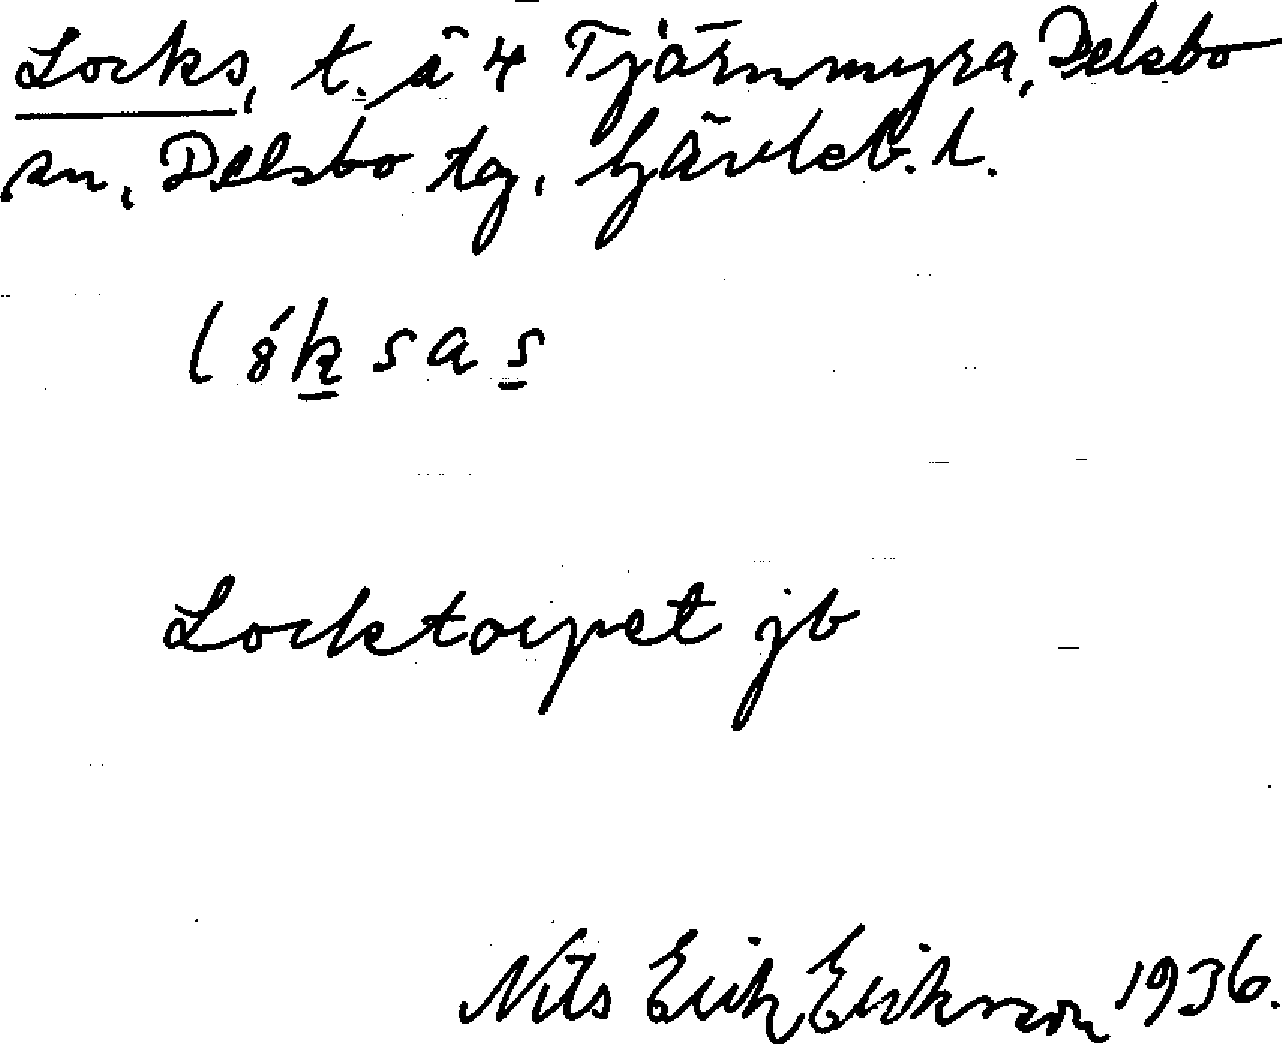 Locks, t. å 4 Tjärnmyra, Delsbo
sn, Delsbo tg, Gävleb. l.
lȣ́ksas
Locktorpet jb
Nils Erik Eriksson 1936.